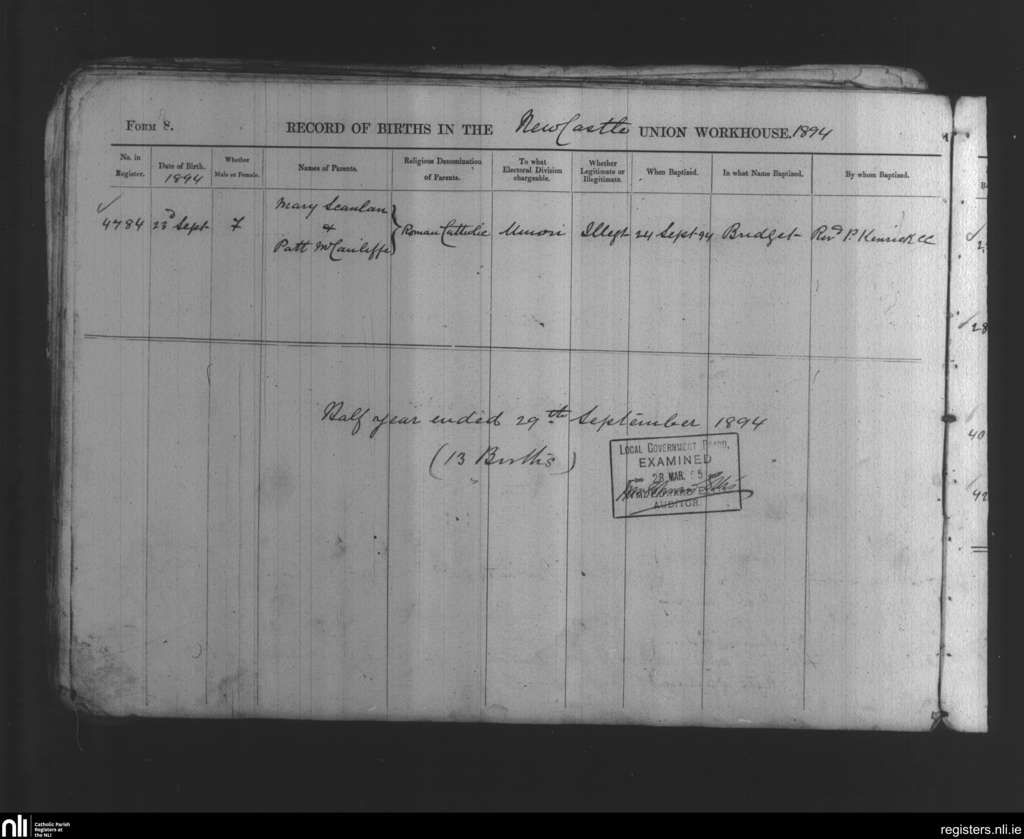 Form 8.
RECORD OF BIRTHS IN THE NewCastle UNION WORKHOUSE. 1894
No. in Register.
Date of Birth. 1894
Whether Male or Female.
Names of Parents.
Religious Denomination of Parents.
To what Electoral Division chargeable.
Whether Legitimate or Illegitimate.
When Baptized.
In what Name Baptized.
By whom Baptized.
Mary Scanlan
4784 23d Sept F & Roman Catholic Illegt 24 Sept 94 Bridget Revd P. Kenrick CC
Patt McCauliffe
Half year ended 29th September 1894
(13 Births)
LOCAL GOVERNMENT BOARD,
EXAMINED
28 MAR. 95
AUDITOR
nli Catholic Parish Registers at the NLI
registers.nli.ie